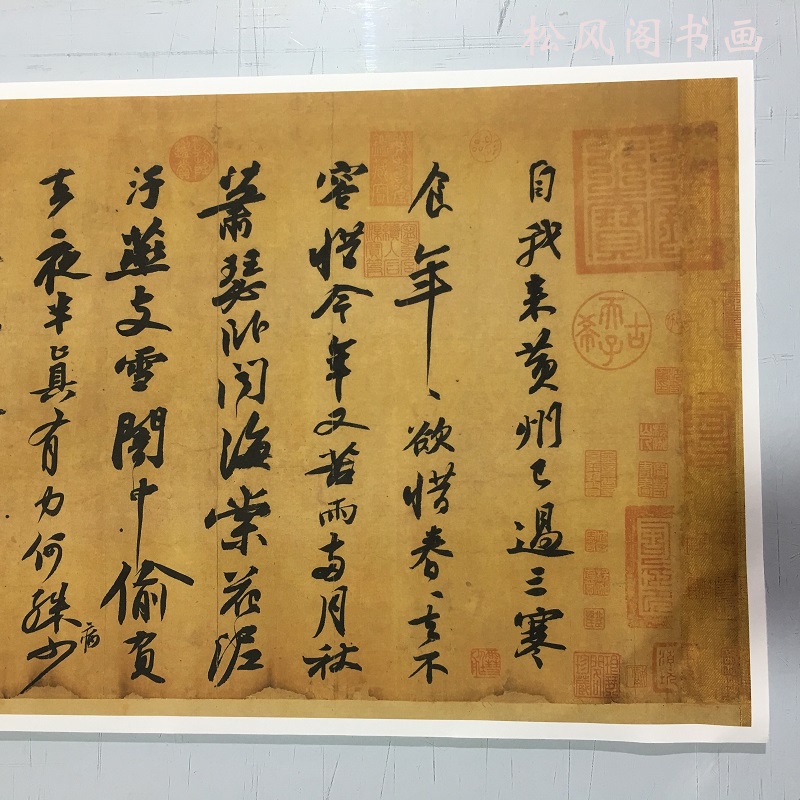 松风阁书画
自我来黄州已過三寒
食年、欲惜春、去不
容惜今年又苦雨兩月秋
蕭瑟卧聞海棠花泥
汙燕支雪闇中偷負
去夜半真有力何殊少
病
古希天子